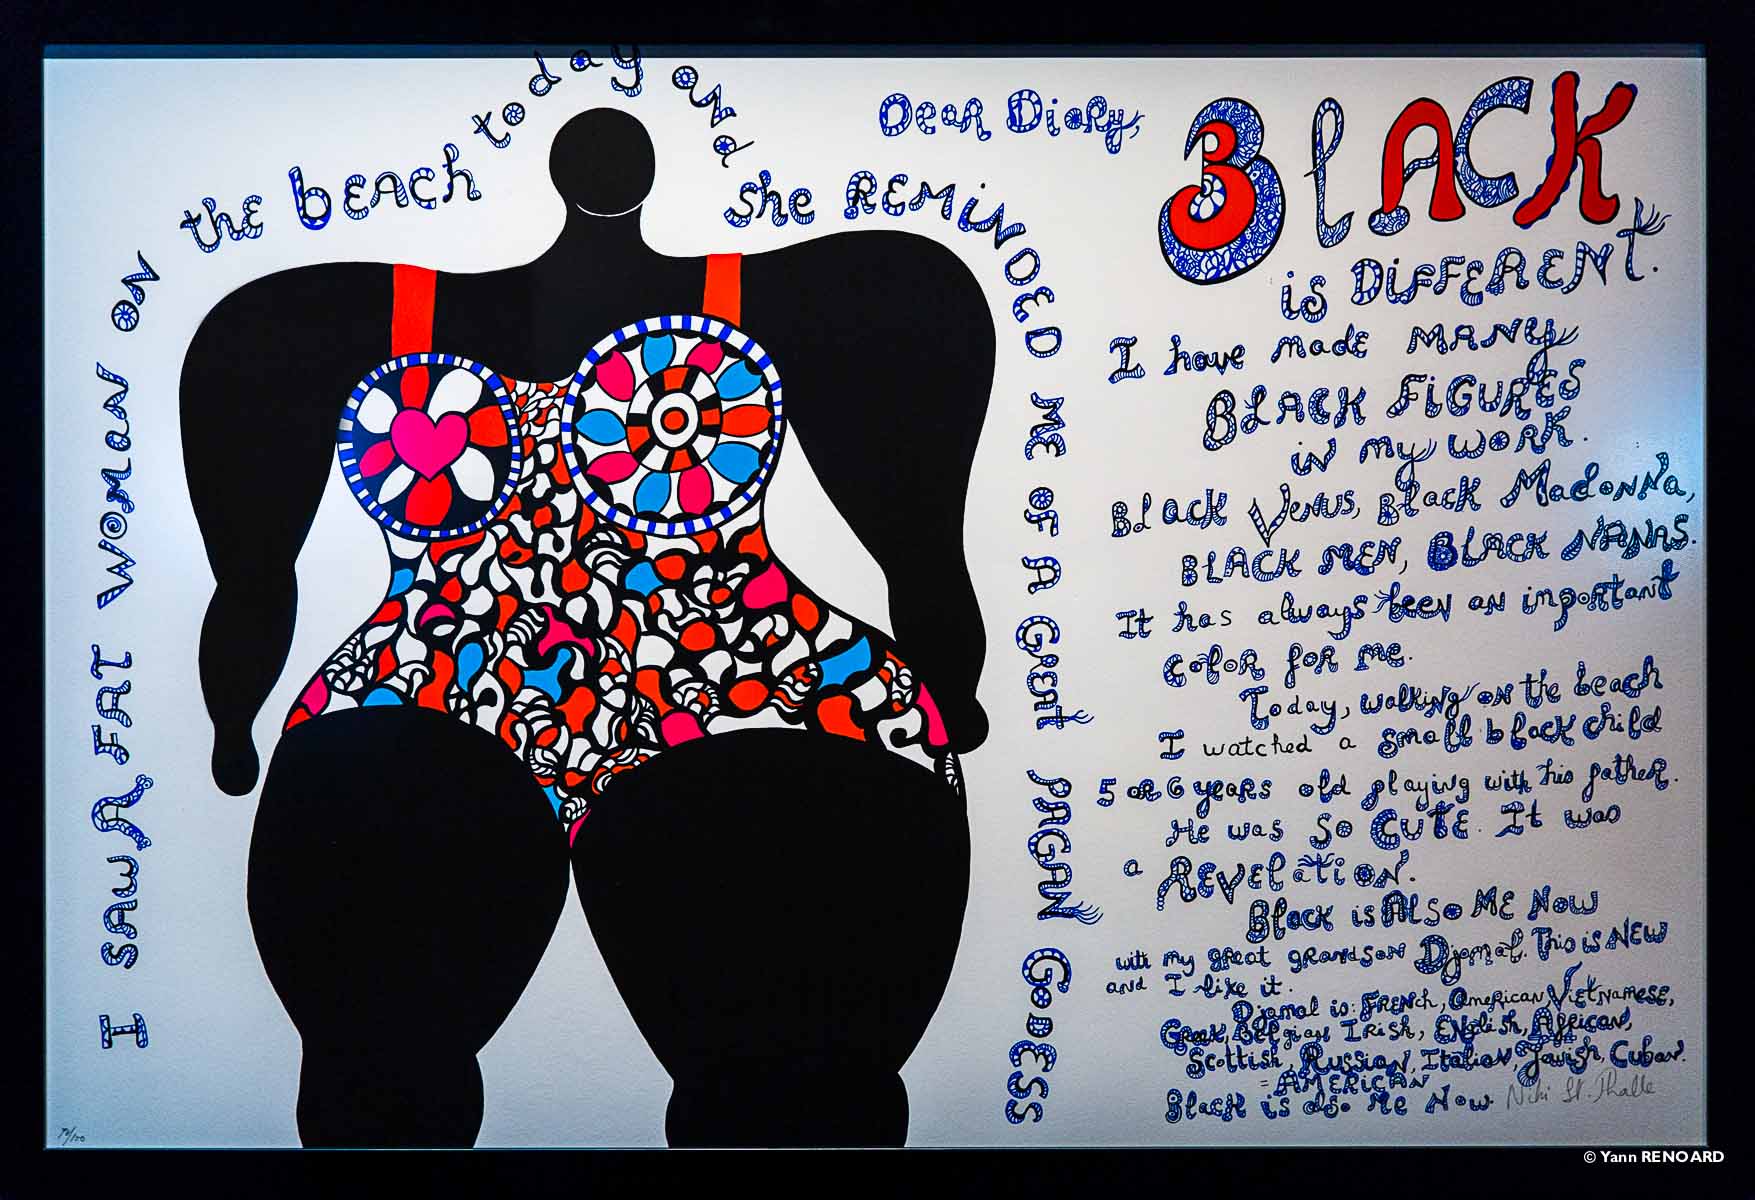 I SAW A FAT WOMAN ON the BEACH today and she REMINDED ME OF A GREAT PAGAN GODESS
Dear Diary,
BLACK
is DIFFERENT.
I have made MANY
BLACK FIGURES
in my WORK.
Black Venus, Black Madonna,
BLACK MEN, BLACK NANAS.
It has always been an important
color for me.
Today, walking on the beach
I watched a small black child
5 or 6 years old playing with his father.
He was SO CUTE. It was
a REVElation.
Black is Also ME NOW
with my great grandson Djamal. This is NEW
and I like it.
Djamal is: FRENch, American, Vietnamese,
Greek, Belgian, Irish, English, African,
Scottish, Russian, Italian, Jewish, Cuban.
= AMERICAN
Black is also Me Now
Niki St. Phalle
© Yann RENOARD